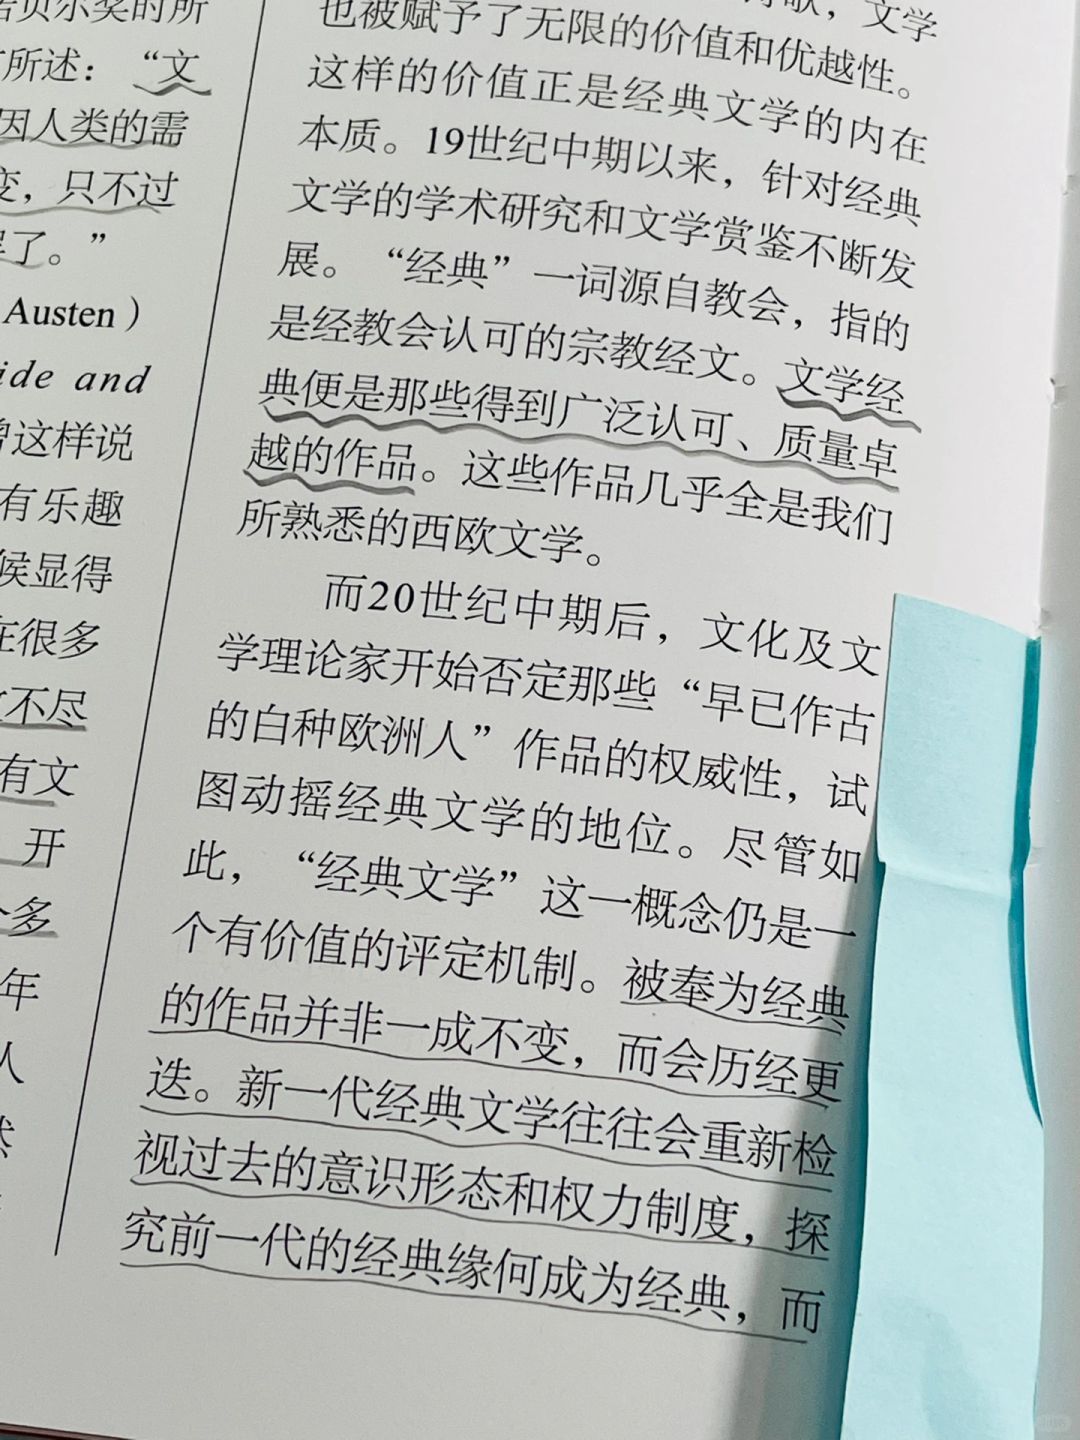 诺贝尔奖的所
所述：“文
因人类的需
变，只不过
了。”
Austen）
ide and
曾这样说
有乐趣
候显得
在很多
不尽
有文
开
多
年
人
然
，文学
也被赋予了无限的价值和优越性。
这样的价值正是经典文学的内在
本质。19世纪中期以来，针对经典
文学的学术研究和文学赏鉴不断发
展。“经典”一词源自教会，指的
是经教会认可的宗教经文。文学经
典便是那些得到广泛认可、质量卓
越的作品。这些作品几乎全是我们
所熟悉的西欧文学。
而20世纪中期后，文化及文
学理论家开始否定那些“早已作古
的白种欧洲人”作品的权威性，试
图动摇经典文学的地位。尽管如
此，“经典文学”这一概念仍是一
个有价值的评定机制。被奉为经典
的作品并非一成不变，而会历经更
迭。新一代经典文学往往会重新检
视过去的意识形态和权力制度，探
究前一代的经典缘何成为经典，而